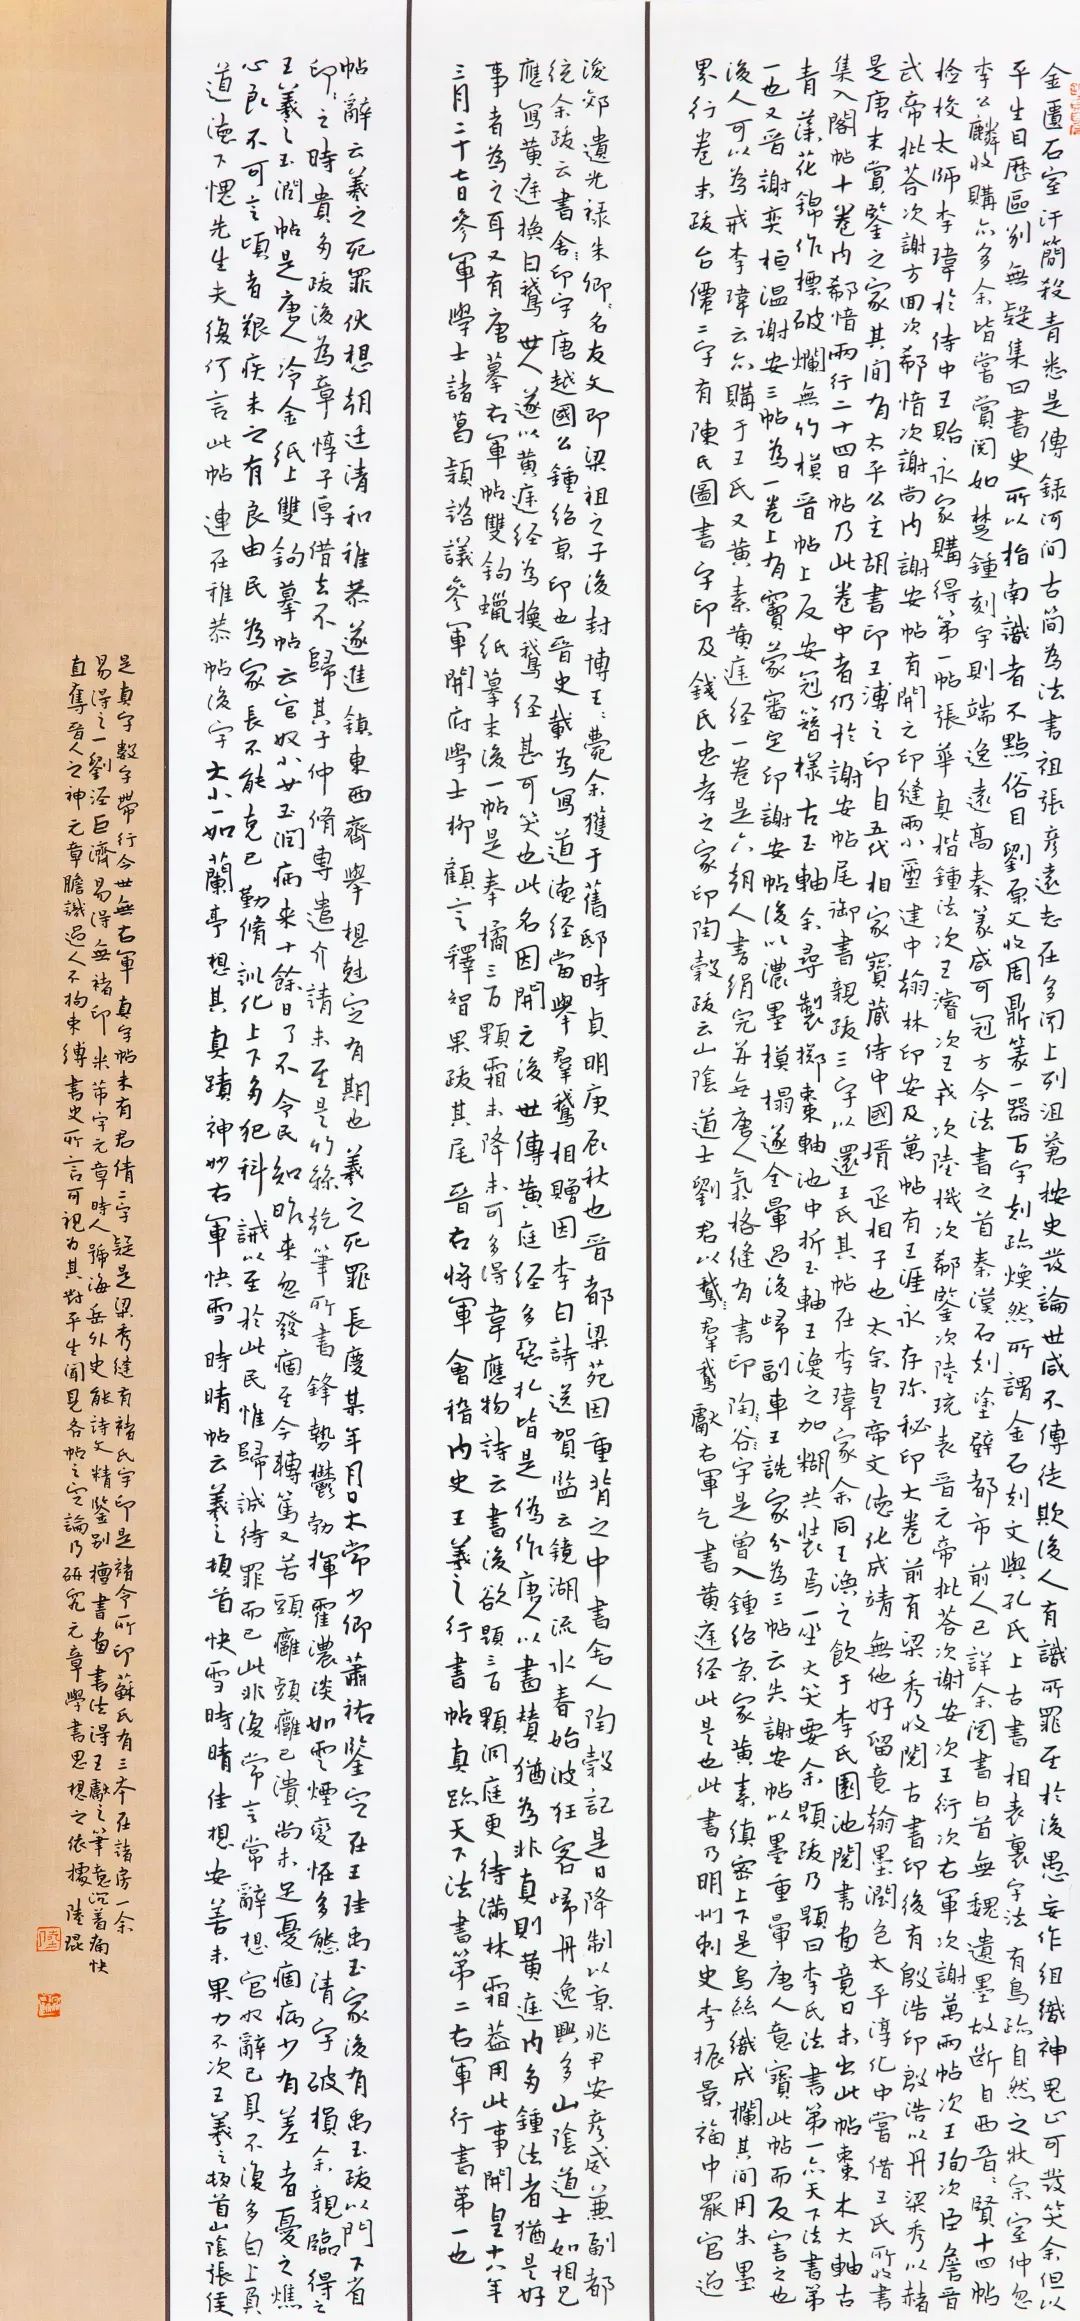 金匱石室汗簡殺青悉是傳録河間古簡為法書祖張彦遠志在多聞上列沮蒼按史發論世咸不傳徒欺後人有識所罪至於後愚妄作組織神鬼止可發笑余但以
平生目歷區别無疑集曰書史所以指南識者不點俗目劉原父收周鼎篆一器百字刻跡煥然所謂金石刻文與孔氏上古書相表裏字法有鳥跡自然之狀宗室仲忽
李公麟收購亦多余皆嘗賞閱如楚鍾刻字則端逸遠高秦篆咸可冠方今法書之首秦漢石刻塗壁都市前人已詳余閱書白首無魏遺墨故斷自西晉晉賢十四帖
檢校太師李瑋於侍中王貽永家購得第一帖張華真楷鍾法次王濬次王戎次陸機次郗鑒次陸玩表晉元帝批答次謝安次王衍次右軍次謝萬兩帖次王珣次臣詹晉
武帝批答次謝方回次郗愔次謝尚内謝安帖有開元印縫兩小璽建中翰林印安及萬帖有王涯永存珎秘印大卷前有梁秀收閱古書印後有殷浩印殷浩以丹梁秀以赭
是唐末賞鑒之家其間有太平公主胡書印王溥之印自五代相家寶蔵侍中國壻丞相子也太宗皇帝文徳化成靖無他好留意翰墨潤色太平淳化中嘗借王氏所收書
集入閣帖十卷内郗愔兩行二十四日帖乃此卷中者仍於謝安帖尾御書親跋三字以還王氏其帖在李瑋家余同王渙之飲于李氏園池閱書畫竟日未出此帖棗木大軸古
青藻花錦作標破爛無竹模晉帖上反安冠簪樣古玉軸余尋製擲棗軸池中拆玉軸王渙之加糊共装焉一坐大笑要余題跋乃題曰李氏法書第一亦天下法書第
一也又晉謝奕桓温謝安三帖為一卷上有竇蒙審定印謝安帖後以濃墨模搨遂全暈過後歸副車王詵家分為三帖云失謝安帖以墨重暈唐人意寶此帖而反害之也
後人可以為戒李瑋云亦購于王氏又黄素黄庭经一卷是六朝人書絹完并無唐人氣格縫有書印陶穀字是曾入鍾紹京家黄素縝密上下是烏絲織成欄其間用朱墨
界行卷末跋台僊二字有陳氏圖書字印及錢氏忠孝之家印陶穀跋云山陰道士劉君以鵝羣鵝獻右軍乞書黄庭经此是也此書乃明州刺史李振景福中罷官過
浚郊遺光禄朱卿卿名友文即梁祖之子後封博王王薨余獲于舊邸時貞明庚辰秋也晉都梁苑因重背之中書舍人陶穀記是日降制以京兆尹安彦威兼副都
統余跋云書舍印字唐越國公鍾紹京印也晉史載為寫道徳经當舉羣鵝相贈因李白詩送賀監云鏡湖流水春始波狂客歸舟逸興多山陰道士如相見
應寫黄庭換白鵝世人遂以黄庭经為換鵝经甚可笑也此名因開元後世傳黄庭经多惡札皆是偽作唐人以畫賛猶為非真則黄庭内多鍾法者猶是好
事者為之耳又有唐摹右軍帖雙鉤蠟纸摹末後一帖是奉橘三百顆霜未降未可多得韋應物詩云書後欲題三百顆洞庭更待滿林霜葢用此事開皇十八年
三月二十七日參軍學士諸葛潁諮議參軍開府學士柳顧言釋智果跋其尾晉右將軍會稽内史王羲之行書帖真跡天下法書第二右軍行書第一也
帖辭云羲之死罪伏想朝廷清和稚恭遂進鎮東西齊舉想尅定有期也羲之死罪長慶某年月日太常少卿蕭祐鑒定在王珪禹玉家後有禹玉跋以門下省
印印之時貴多跋後為章惇子厚借去不歸其子仲脩專遣介請未至是竹絲乾筆所書鋒勢鬱勃揮霍濃淡如雲煙變怪多態清字破損余親臨得之
王羲之玉潤帖是唐人冷金紙上雙鉤摹帖云官奴小女玉潤病来十餘日了不令民知昨来忽發痼至今轉篤又苦頭癰頭癰已潰尚未足憂痼病少有差者憂之燋
心良不可言頃者艱疾未之有良由民為家長不能克己勤脩訓化上下多犯科誡以至於此民惟歸誠待罪而已此非復常言常辭想官奴辭已具不復多白上負
道徳下愧先生夫復何言此帖連在稚恭帖後字大小一如蘭亭想其真蹟神妙右軍快雪時晴帖云羲之頓首快雪時晴佳想安善未果力不次王羲之頓首山陰張侯
是真字數字帶行今世無右軍真字帖末有君倩二字疑是梁秀縫有褚氏字印是褚令所印蘇氏有三本在諸房一余
易得之一劉涇巨濟易得無褚印米芾字元章時人號海岳外史能詩文精鑒别擅書畫書法得王獻之筆意沉着痛快
直奪晉人之神元章膽識過人不拘束縛書史所言可視為其對平生聞見各帖之定論乃研究元章學書思想之依據陸琨